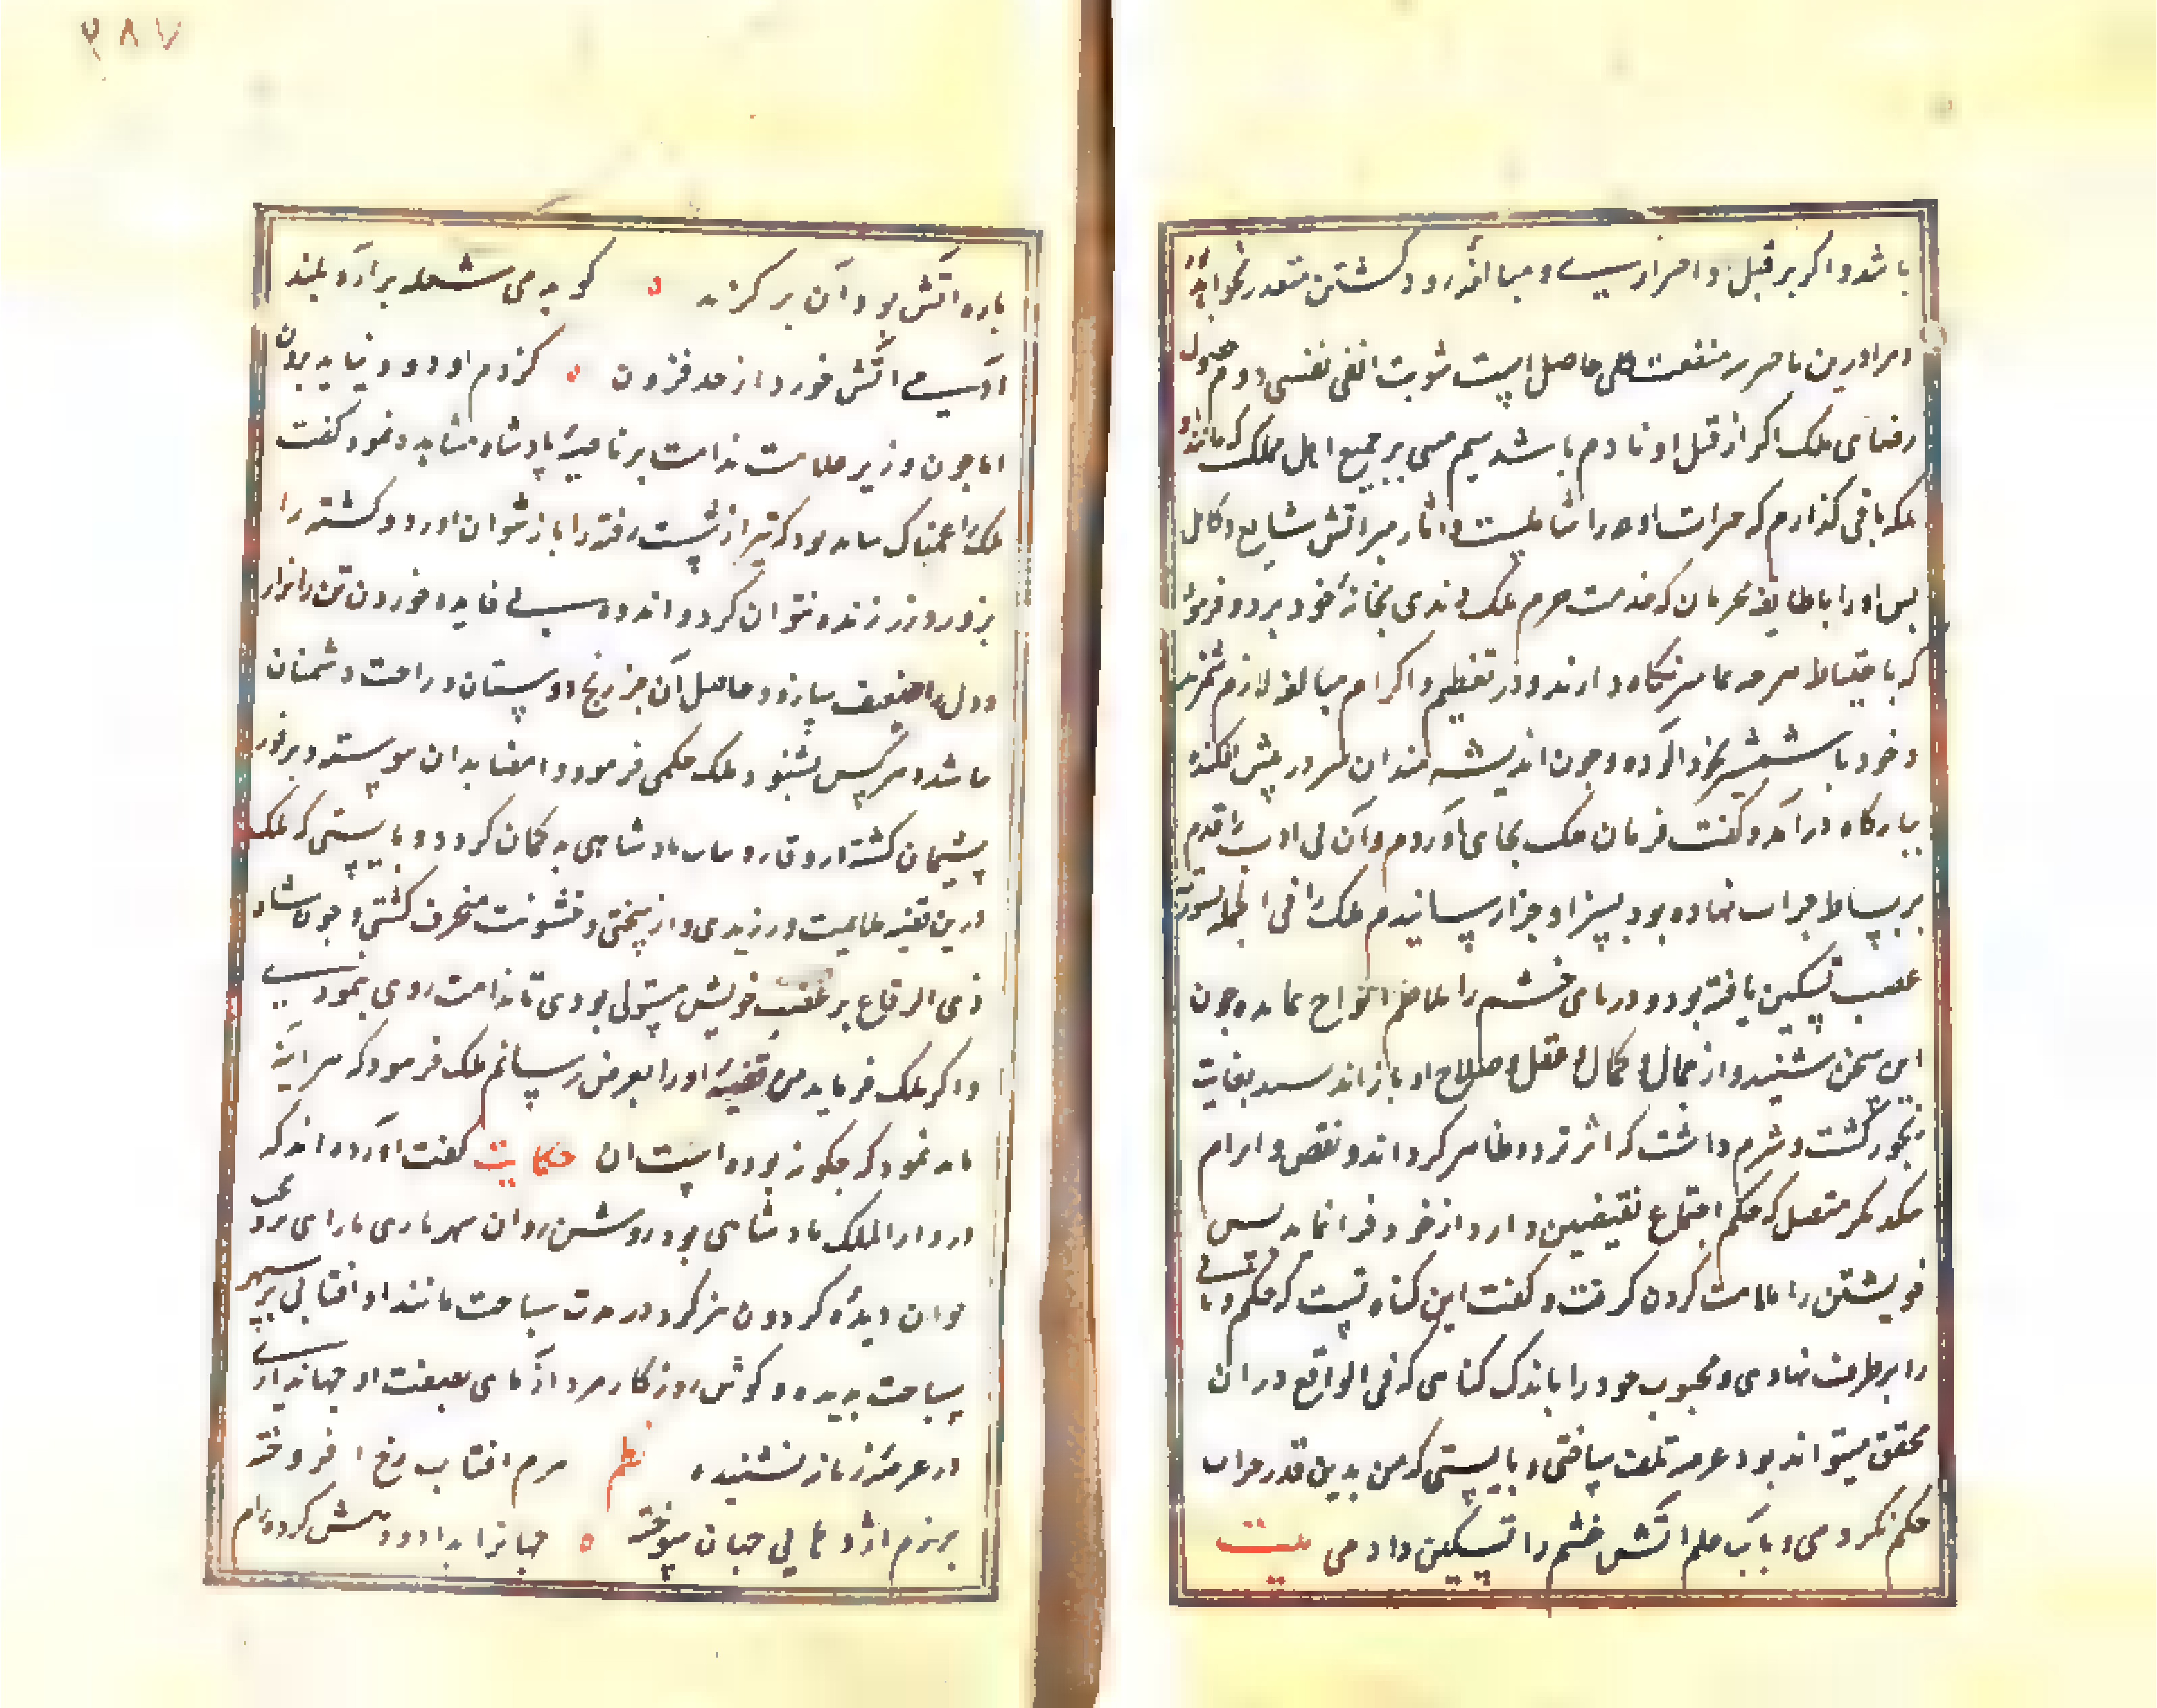 باشد و اگر بر قتل و اصرار و مبالغه رود کشتن متعذر نخواهد
و مرا درین تاخیر سه منفعت کلی حاصل است مثوبت ابقای نفسی دوم حصول
رضای ملک اگر از قتل او نادم باشد سیم منتی بر جمیع اهل مملکت که مانند او
ملکه باقی گذارم که خیرات او را شاملست و آثار مبراتش شایع و کامل
پس او را با طایفه محرمان که خدمت حرم ملک کردندی بخانه خود برد و فرمود
که باحتیاط هرچه تمامتر نگاه دارند و در تعظیم و اکرام مبالغه لازم شمرند
و خود با شمشیر بخون آلوده و چون اندیشه مندان سر در پیش افکنده
ببارگاه درآمد و گفت فرمان ملک بجای آوردم و آن بی ادب را که قدم
بر بساط جرات نهاده بود بسزا و جزا رسانیدم ملک را فی الجمله سورت
غضب تسکین یافته بود و دریای خشم را تلاطم امواج نمانده چون
این سخن شنید و از جمال و کمال و عقل و صلاح او باز اندیشید بغایت
رنجور گشت و شرم داشت که اثر تردد ظاهر گرداند و نقض و ابرام
یکدیگر متصل که حکم اجتماع نقیضین دارد از خود فرا نماید پس
خویشتن را ملامت کردن گرفت و گفت این گناه تست که حلم و تانی
را برطرف نهادی و محبوب خود را باندک گناهی که فی الواقع در آن
محقق میتواند بود عرضه تلف ساختی و بایستی که من بدین قدر جراب
حکم نکردمی و بآب حلم آتش خشم را تسکین دادمی بیت
باره آتش بود آن بر گزند ه کو بدمی شعله برآرد بلند
آدمی آتش خورد از حد فزون ه کز دم او دود نیاید برون
اما چون وزیر علامت ندامت بر ناصیه پادشاه مشاهده نمود گفت
ملک را غمناک نباید بود که تیر از شست رفته را باز نتوان آورد و کشته را
بزور و زر زنده نتوان کرد و اندوه بی فایده خوردن تن را نزار
و دل را ضعیف سازد و حاصل آن جز رنج دوستان و راحت دشمنان
نباشد و هرکس بشنود ملک حکمی فرمود و امضا بدان پیوسته و بر فور
پشیمان گشته از وقار و ثبات پادشاهی بد گمان گردد و بایستی که ملک
درین قضیه ملایمت ورزیدی و از سختی و خشونت منحرف گشتی و چون شاه
ذی الرقاع بر غضب خویش مستولی بودی تا ندامت روی ننمودی
و اگر ملک فرماید من قضیه او را بعرض رسانم ملک فرمود که هر آینه
باید نمود که چگونه بوده است آن حکایت گفت آورده اند که
در دار الملک پادشاهی بود روشن روان شهریاری با رای پیر و بخت
جوان دیده گردون هرگز در مدت سیاحت مانند او آفتابی بر سپهر
سیاحت ندیده و گوش روزگار مردآزمای بصفت او جهانداری
در عرصه زمانه نشنیده نظم برزم آفتاب رخ افروخته
برزم اژدهایی جهان سوخته ه جهانرا بداد و دهش کرده رام
۷۸۶